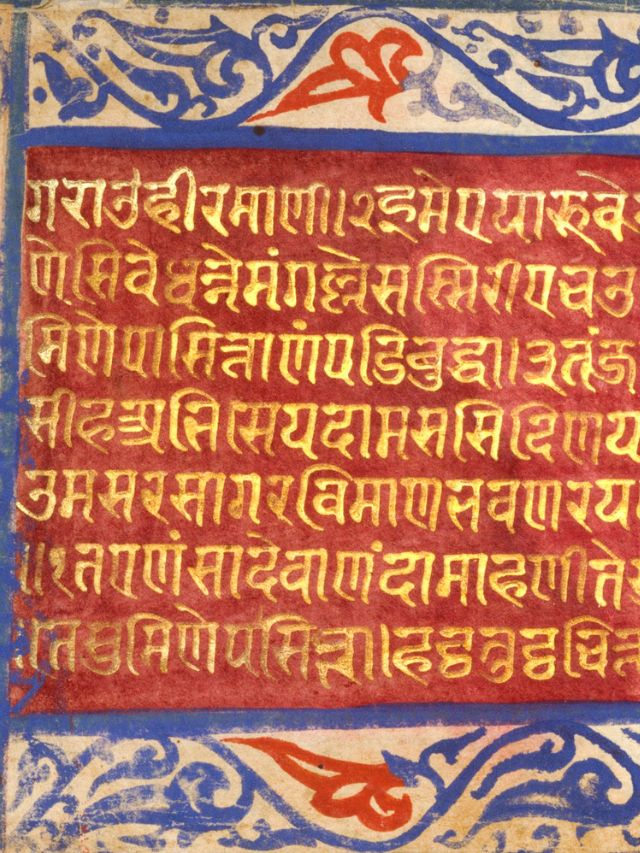 गराउहीरमाणी॥२इमेएयारुवे
णेसिवेधन्नेमंगल्लेसस्सिरीएचउ
मिणेपासित्ताणंपडिबुद्धा।३तंज
सीहअभिसेयदामससिदिणय
उमसरसागरविमाणभवणरय
॥१तएणंसादेवाणंदामाहणीते
मिणेपासित्ता।हट्ठतुट्ठचित्त